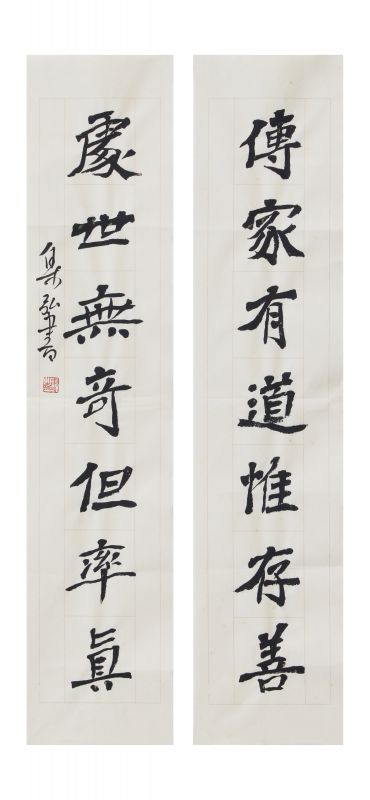 傳家有道惟存善
處世無奇但率真
集弘書